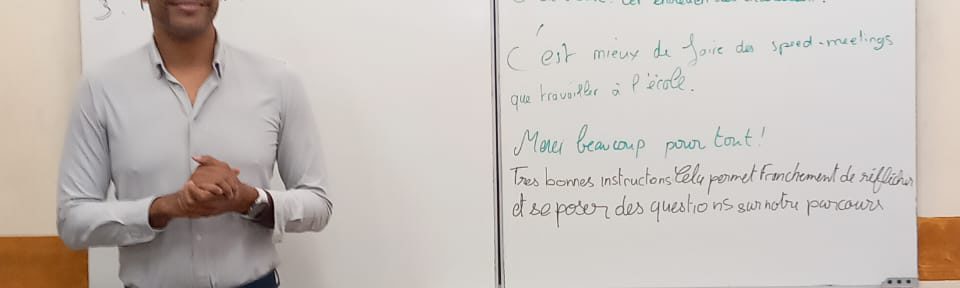 3.
C'est mieux de faire des speed-meetings
que travailler à l'école.
Merci beaucoup pour tout!
Tres bonnes instructons Cela permet Franchement de réflichir
et se poser des questions sur notre parcours